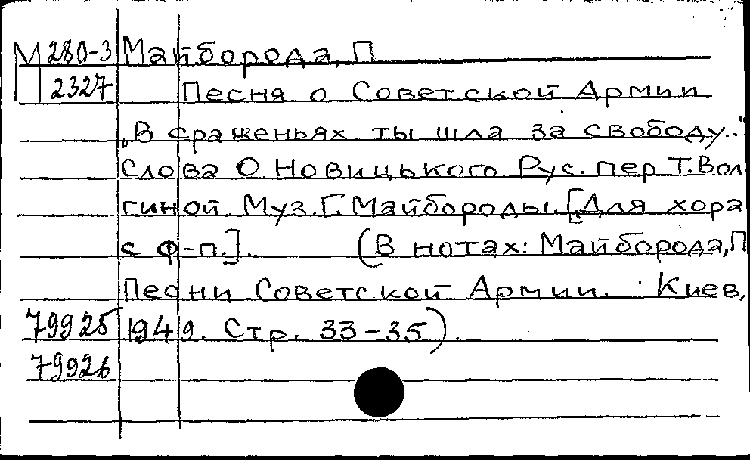 М 280-3 Майборода, П
2327 Песня о Советской Армии
„В сраженьях ты шла за свободу..."
Слова О Новицького Рус. пер Т. Вол
гиной. Муз. Г. Майбороды. [Для хора
с ф-п.]. (В нотах: Майборода, П
Песни Советской Армии. Киев,
79925 1949. Стр. 33-35).
79926